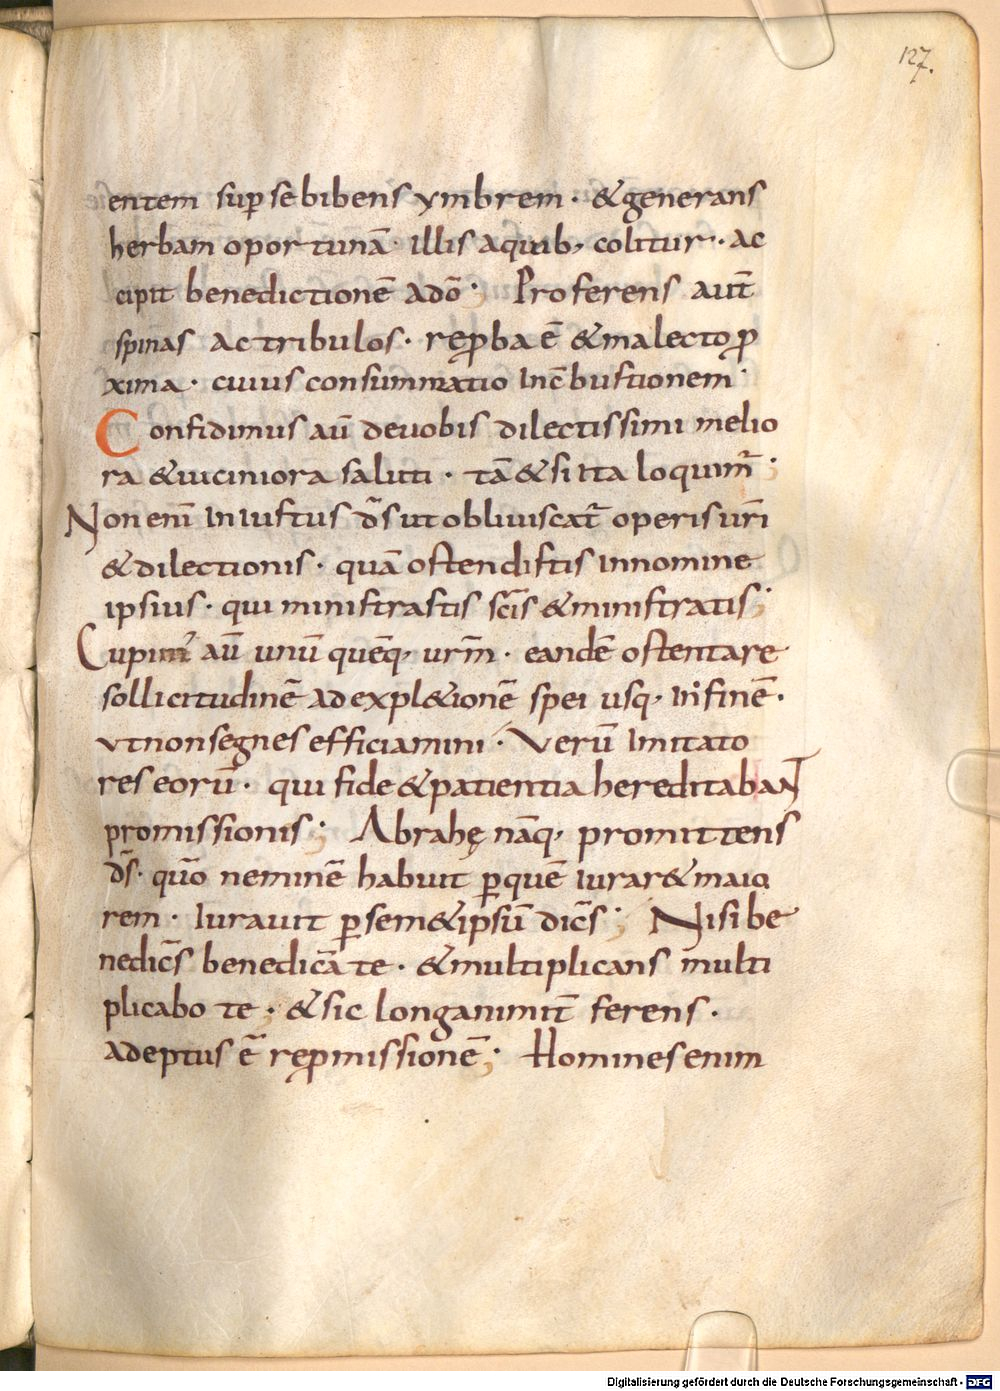 127.
entem sup̱ se bibens ymbrem · & generans
herbam oportunā · illis aquib; colitur · ac
cipit benedictionē adō ; Proferens aut̄
spinas ac tribulos · reꝓba ē & malecto ꝓ
xima · cuius consummatio inc̄bustionem ·
Confidimus aū deuobis dilectissimi melio
ra & uiciniora saluti · tā & si ita loquim̄ ;
Non eni iniustus d̄s ut obliuiscat̄ operis ur̄i
& dilectionis · quā ostendistis innomine
ipsius · qui ministrastis sc̄is & ministratis ;
Cupim̄ aū unū quēq; urm̄ · eandē ostentare
sollicitudinē ad expl&ionē spei usq; in finē ·
ut non segnes efficiamini · Verū imitato
res eorū · qui fide & patientia hereditabant
promissionis ; Abrahę nāq; promittens
d̄s · qūo neminē habuit ꝑquē iurar& maio
rem · Iurauit ꝑ sem&ipsū dic̄s ; Nisi be
nedic̄s benedicā te · & multiplicans multi
plicabo te · & sic longanimit̄ ferens ·
adeptus ē reꝓmissionē ; Homines enim
Digitalisierung gefördert durch die Deutsche Forschungsgemeinschaft - DFG